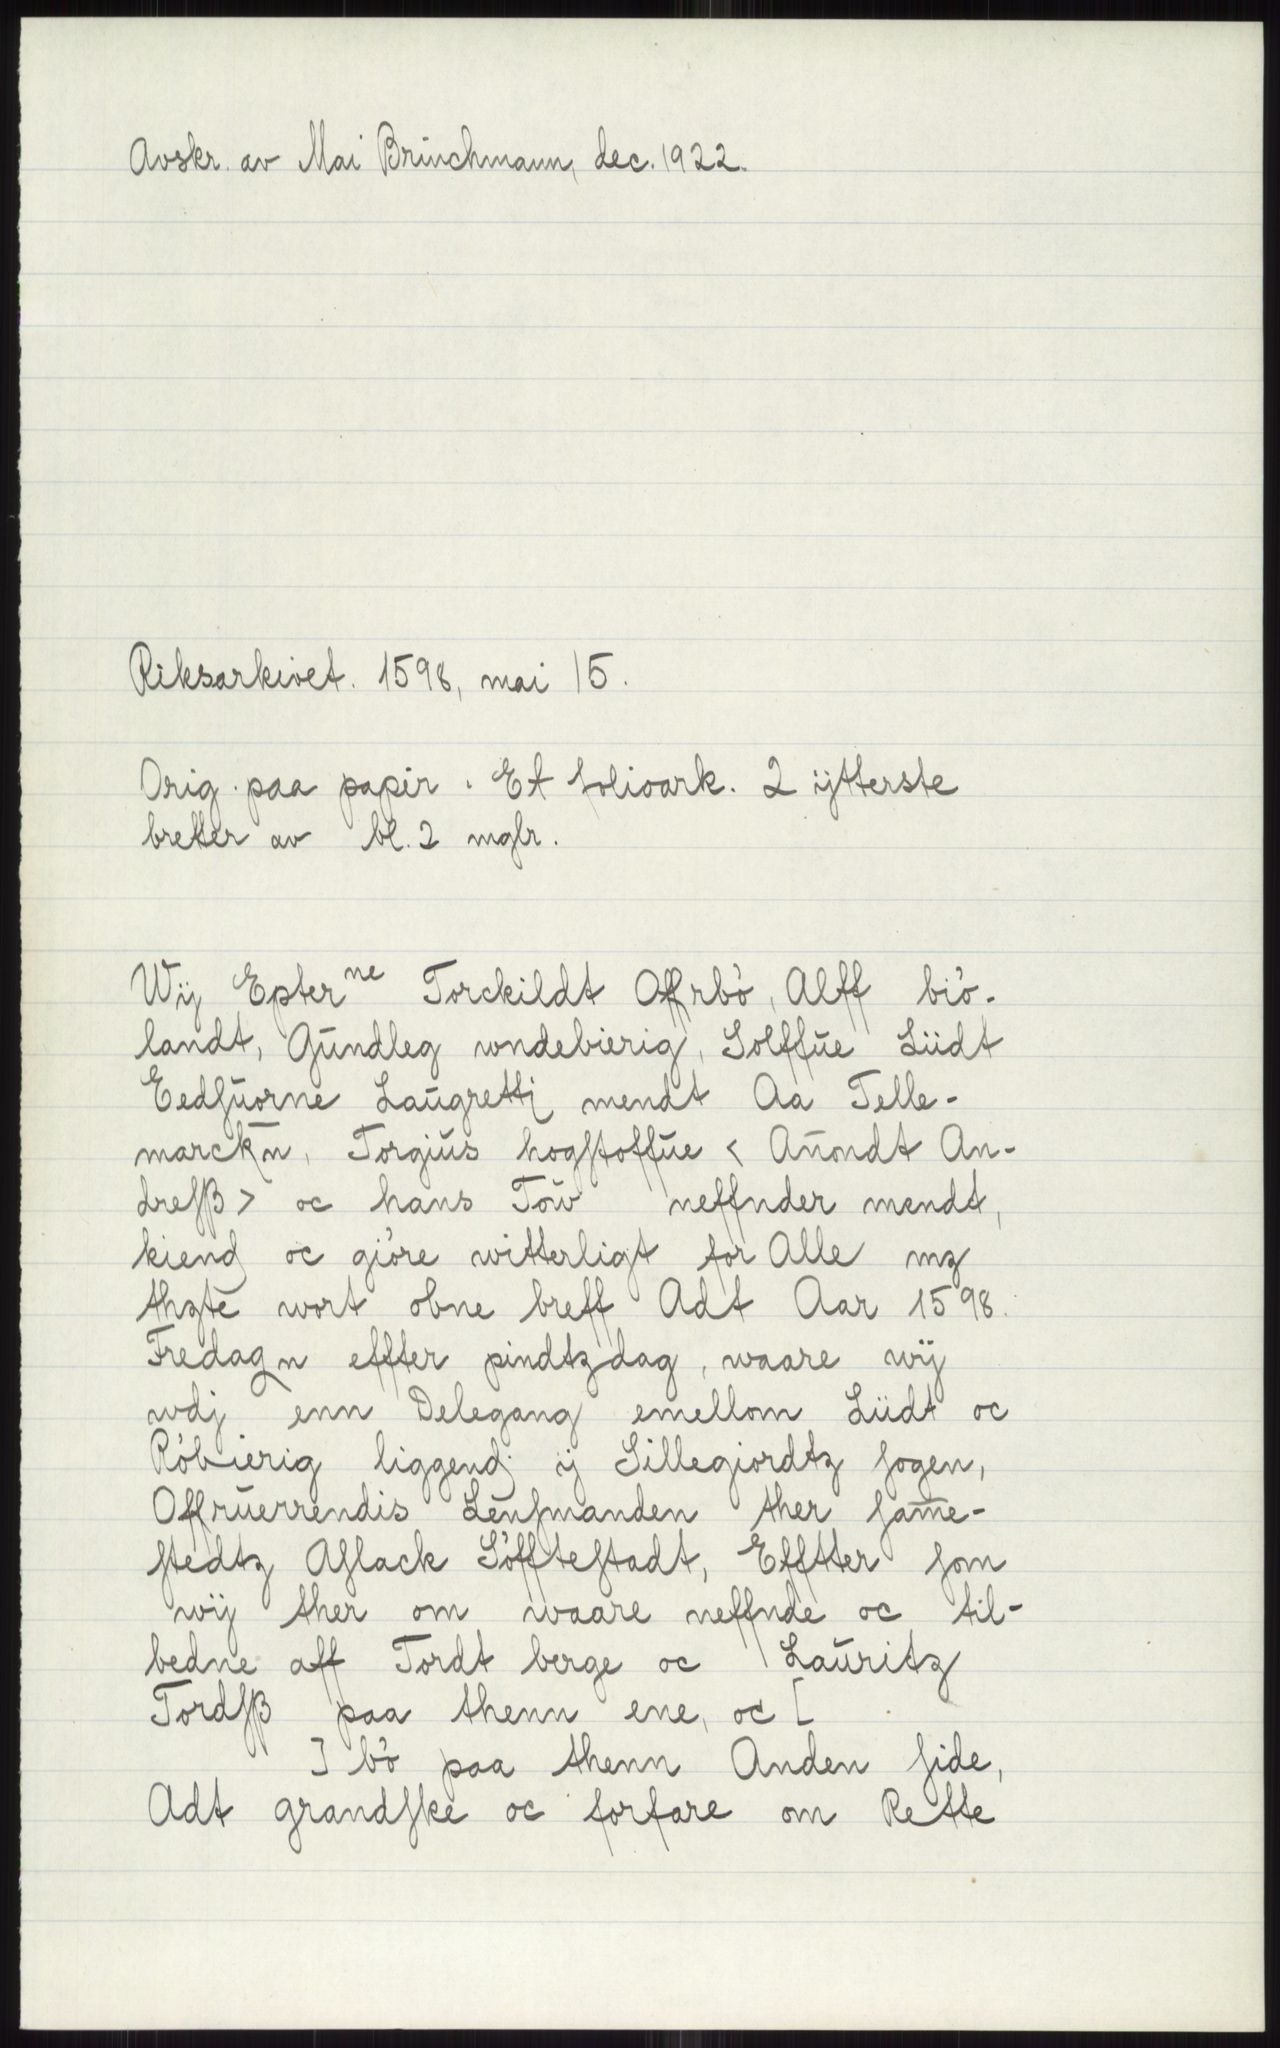 Avskr. av Mai Brinchmann, dec. 1922.
Riksarkivet. 1598, mai 15.
Orig. paa papir. Et folioark. 2 ytterste
bretter av bl. 2 mglr.
Wij Epter ne Torckildt Offrbò, Alff biò-
landt, Gūndleg wndebierig, Solffūe Lüdt
Eedſuorne Laūgrettj mendt Aa Telle-
marckn̄, Torgiūs hogſtoffūe < Aūondt An-
dreſβ > oc hans Tōw neffnder mendt,
kiendj oc giòre witterligt for Alle mz
thzte wort obne breff Adt Aar 1598.
Fredagn effter pindtzdag, waare wij
wdj enn Delegang emellom Lüdt oc
Ròbierig liggendj ij Sillegiordtz ſogen,
Offrūerrendis Lenſmanden ther ſam̄e-
ſtedtz Aſlack Sòffteſtadt, Efftter ſom
wij ther om waare neffnde oc til-
bedne aff Tordt berge oc Laūritz
Tordſβ paa thenn ene, oc [
] bò paa thenn Anden ſide,
Adt grandſke oc forfare om Rette